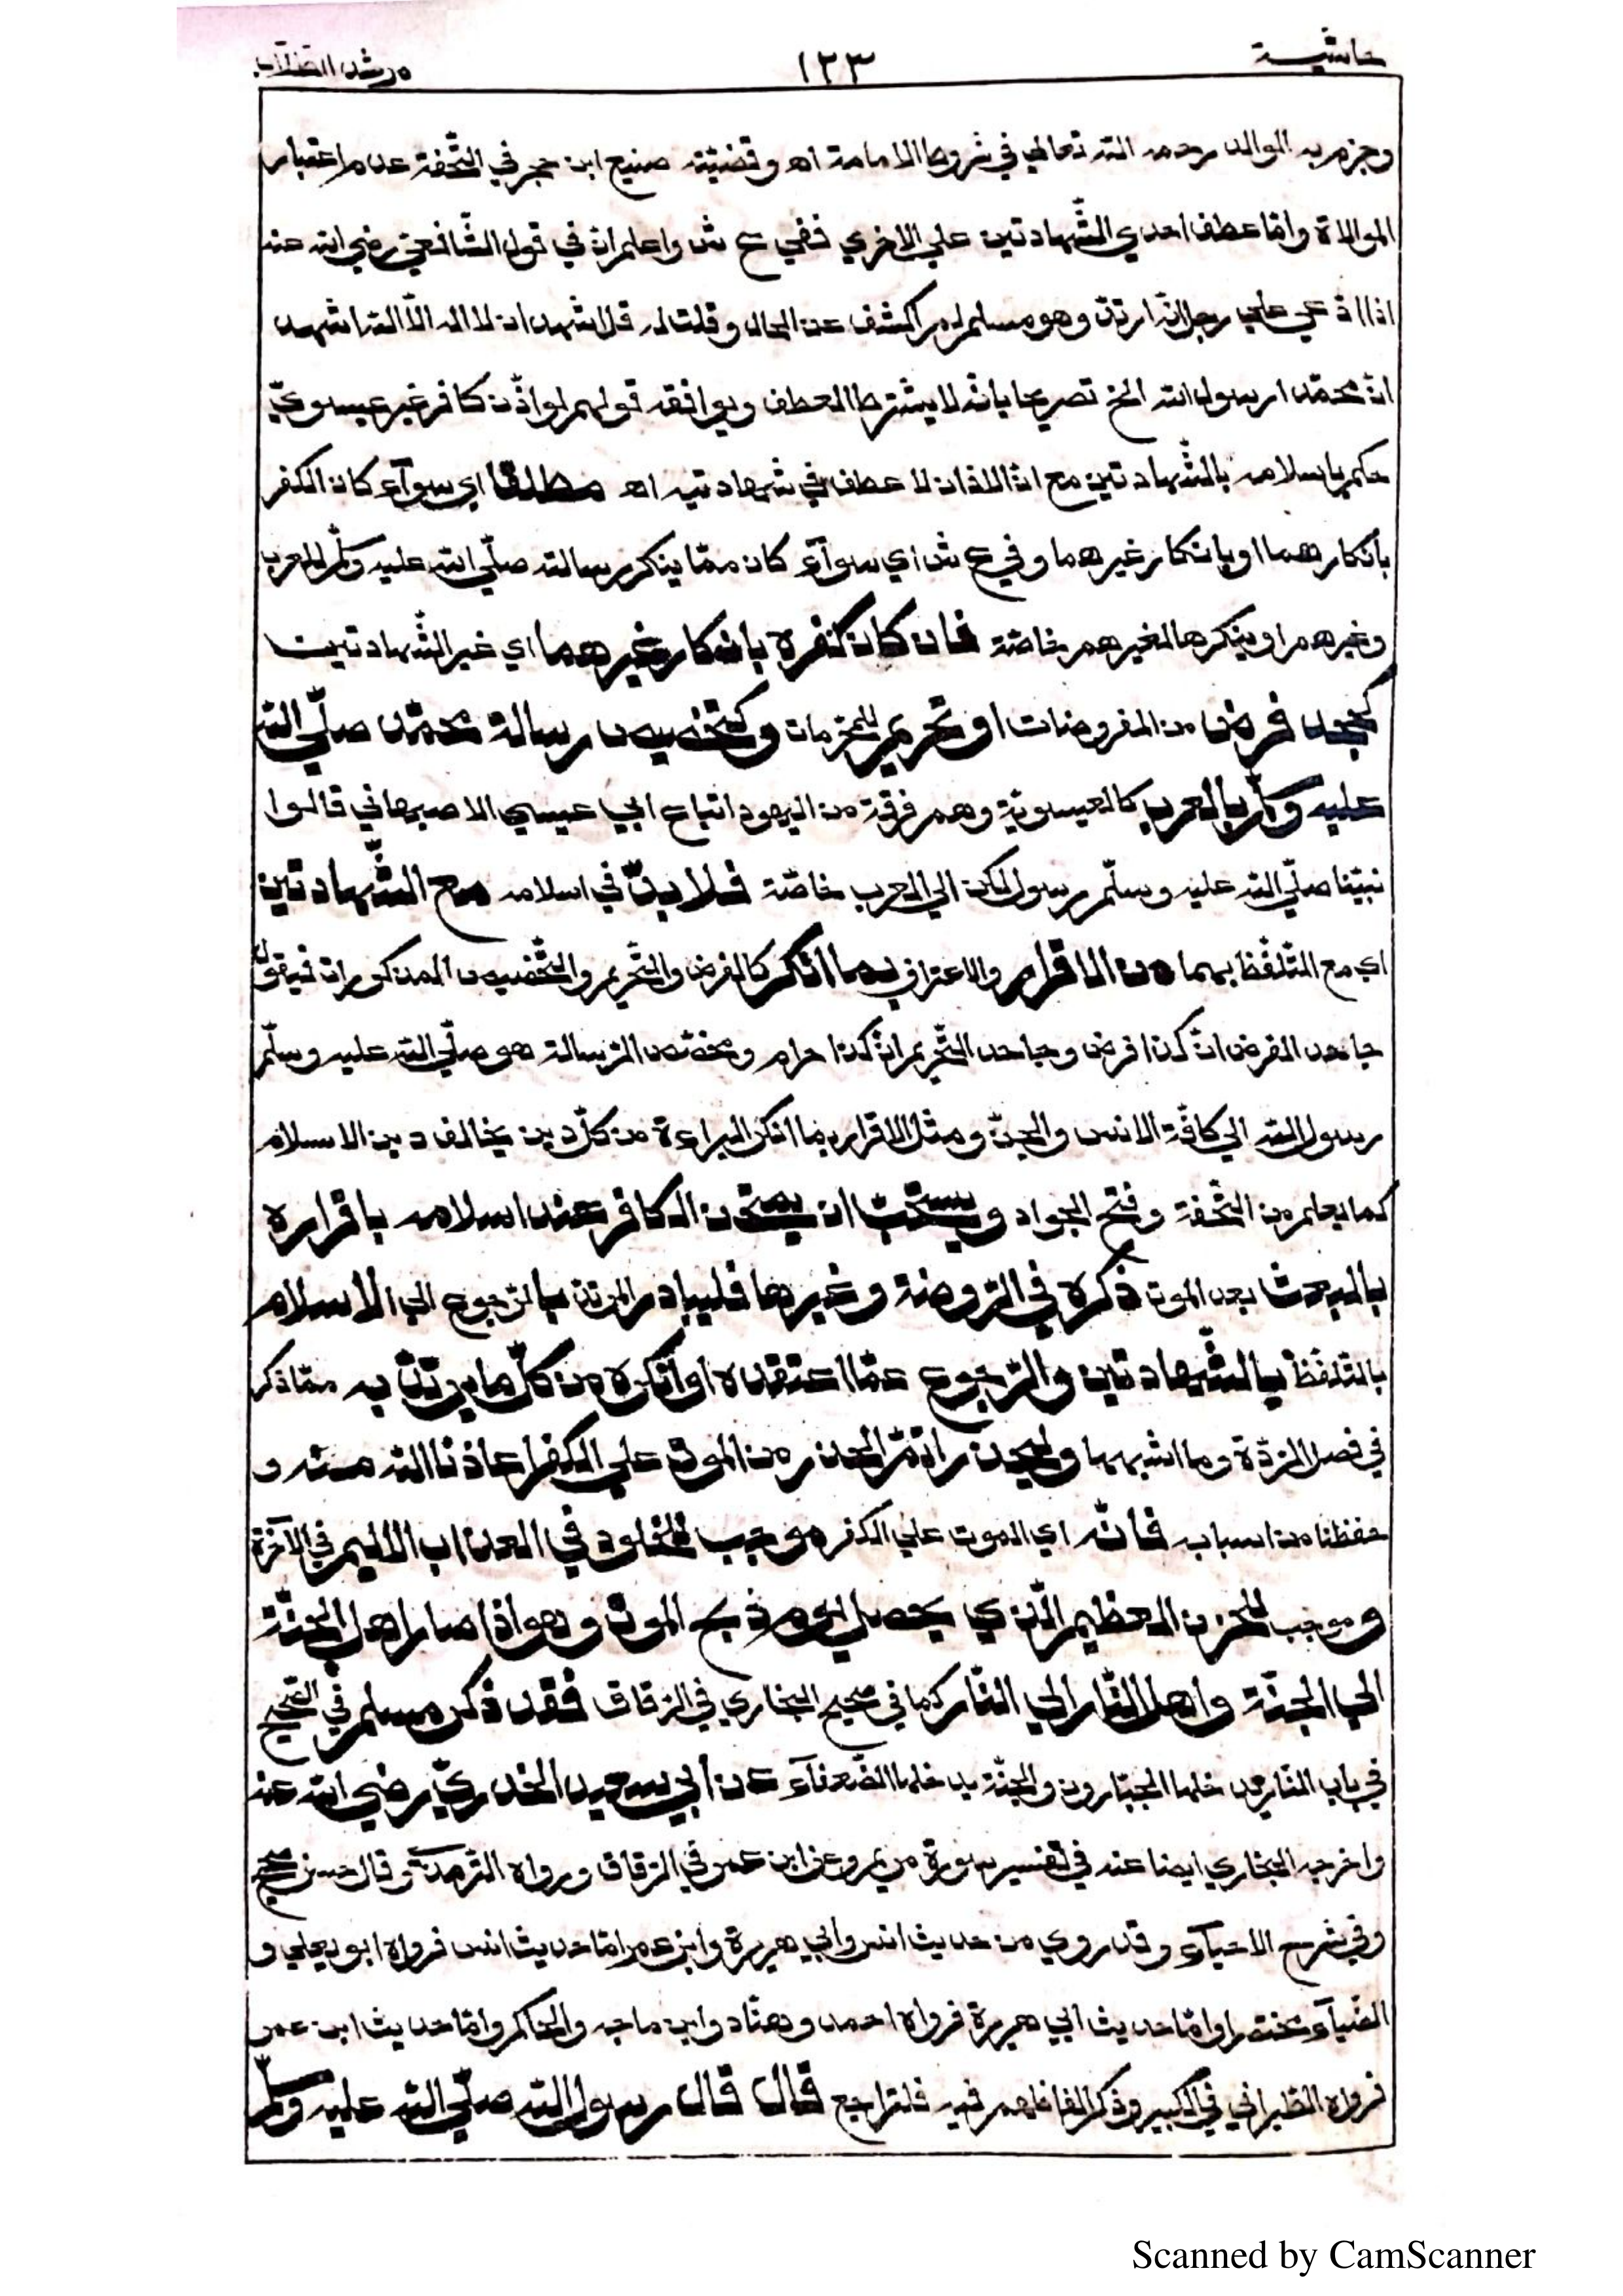 حاشية ١٢٣ مرشد الطلاب
وجزم به الوالد رحمه الله تعالي في شروط الامامة اه وقضيّة صنيع ابن حجر في التّحفة عدم اعتبار
الموالاة وامّا عطف احدي الشّهادتين علي الاخري ففي ع ش واعلم ان في قول الشّافعيّ رضي الله عنه
اذا ادّعي علي رجل انّه ارتدّ وهو مسلم لم اكشف عن الحال وقلت له قل اشهد ان لا اله الّا الله اشهد
انّ محمّدا رسول الله الخ تصريحا بانّه لا يشترط العطف ويوافقه قولهم لو اذّن كافر غير عيسويّ
حكم باسلامه بالشّهادتين مع انّ الاذان لا عطف في شهادتيه اه مطلقا اي سوآء كان الكفر
بانكارهما او بانكار غيرهما وفي ع ش اي سوآء كان ممّا ينكر رسالته صلّي الله عليه وسلّم للعرب
وغيرهم او ينكرها لغيرهم خاصّة فان كان كفره بانكار غيرهما اي غير الشّهادتين
كجحد فرض من المفروضات او تحريم للمحرّمات وكتخصيص رسالة محمّد صلّي الله
عليه وسلّم بالعرب كالعيسويّة وهم فرقة من اليهود اتباع ابي عيسي الاصبهاني قالوا
نبيّنا صلّي الله عليه وسلّم رسول لكن الي العرب خاصّة فلا بدّ في اسلامه مع الشّهادتين
اي مع التّلفّظ بهما من الاقرار والاعتراف بما انكر كالفرض والتّحريم والتّخصيص المذكورات فيقول
جاحد الفرض انّ كذا فرض وجاحد التّحريم انّ كذا حرام ومخصّص الرّسالة هو صلّي الله عليه وسلّم
رسول الله الي كافّة الانس والجنّ ومثل الاقرار بما انكر البراءة من كلّ دين يخالف دين الاسلام
كما يعلم من التّحفة وفتح الجواد ويستحبّ ان يمتحن الكافر عند اسلامه باقراره
بالبعث بعد الموت ذكره في الرّوضة وغيرها فليبادر المرتدّ بالرّجوع الي الاسلام
بالتّلفّظ بالشّهادتين والرّجوع عمّا اعتقده او انكره من كلّ ما يرتدّ به ممّا ذكر
في فصل الرّدّة وما اشبهها وليحذر اتمّ الحذر من الموت علي الكفر اعاذنا الله منه و
حفظنا من اسبابه فانّه اي الموت علي الكفر موجب للخلود في العذاب الاليم في الآخرة
وموجب للحزن العظيم الّذي يحصل يوم ذبح الموت وهو اذا صار اهل الجنّة
الي الجنّة واهل النّار الي النّار كما في صحيح البخاري في الرّقاق فقد ذكر مسلم في الصّحيح
في باب النّار يدخلها الجبّارون والجنّة يدخلها الضّعفآء عن ابي سعيد الخدريّ رضي الله عنه
واخرجه البخاري ايضا عنه في تفسير سورة مريم وعن ابن عمر في الرّقاق ورواه التّرمذيّ وقال حسن صحيح
وفي شرح الاحيآء وقد روي من حديث انس وابي هريرة وابن عمر امّا حديث انس فرواه ابو يعلي و
الضّيآء مختصرا وامّا حديث ابي هريرة فرواه احمد وهنّاد وابن ماجه والحاكم وامّا حديث ابن عمر
فرواه الطّبراني في الكبير وذكر الفاظهم فيه فلتراجع قال قال رسول الله صلّي الله عليه وسلّم
Scanned by CamScanner